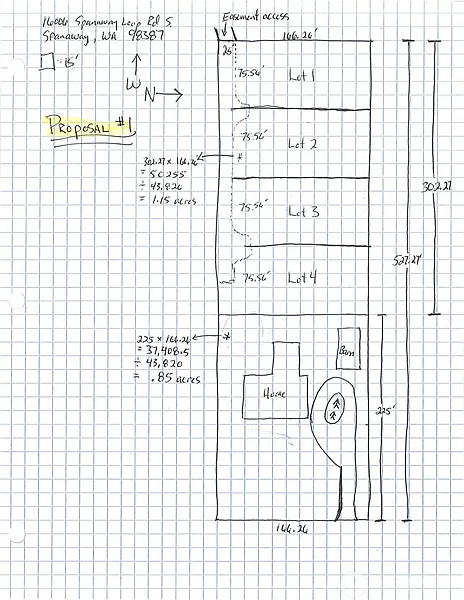 16006 Spanaway Loop Rd S.
Spanaway, WA 98387
= 15'
W
N
PROPOSAL #1
Easement access
166.26'
25'
75.56'
Lot 1
75.56'
Lot 2
302.27 x 166.26
= 50255
÷ 43,820
= 1.15 acres
*
75.56'
Lot 3
75.56'
Lot 4
302.27
527.27'
225 x 166.26
= 37,408.5
÷ 43,820
= .85 acres
*
Barn
Home
225'
166.26